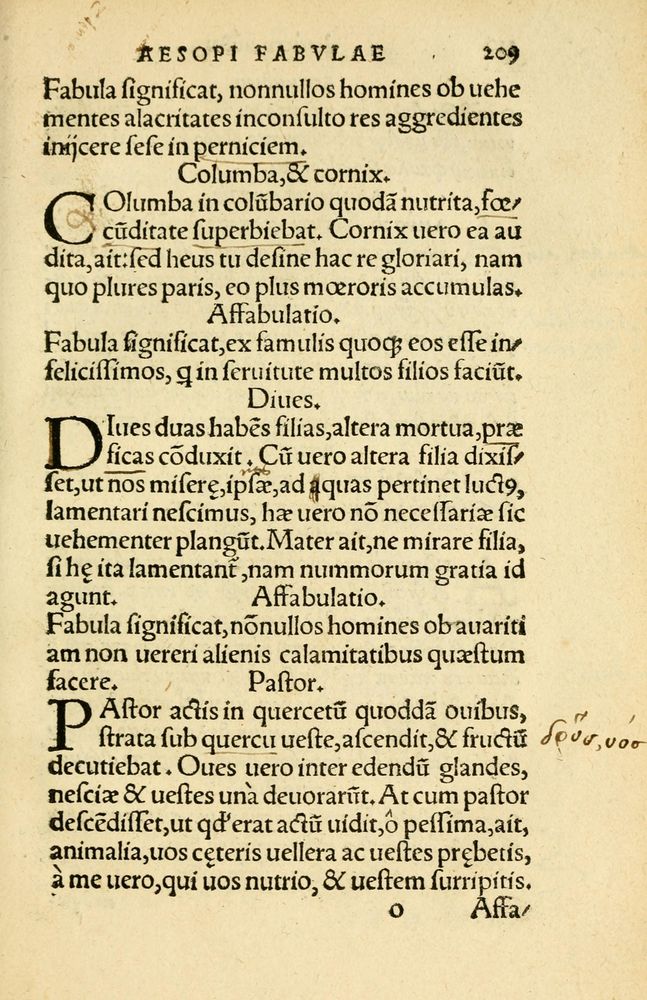 AESOPI FABVLAE 209
Fabula ſignificat, nonnullos homines ob uehe
mentes alacritates inconſulto res aggredientes
inijcere ſeſe in perniciem.
Columba, & cornix.
COlumba in colūbario quodã nutrita, fœ/
cũditate ſuperbiebat. Cornix uero ea au
dita, ait: ſed heus tu deſine hac re gloriari, nam
quo plures paris, eo plus mœroris accumulas.
Affabulatio.
Fabula ſignificat, ex famulis quoqꝫ eos eſſe in/
feliciſſimos, ꝗ in ſeruitute multos filios faciũt.
Diues.
DIues duas habẽs filias, altera mortua, præ
ficas cõduxit. Cũ uero altera filia dixiſ/
ſet, ut nos miſerę, ipſæ, ad quas pertinet luctꝰ,
lamentari neſcimus, hæ uero nõ neceſſariæ ſic
uehementer plangũt. Mater ait, ne mirare filia,
ſi hę ita lamentant᷑, nam nummorum gratia id
agunt. Affabulatio.
Fabula ſignificat, nõnullos homines ob auariti
am non uereri alienis calamitatibus quæſtum
facere. Paſtor.
PAſtor actis in quercetũ quoddã ouibus,
ſtrata ſub quercu ueſte, aſcendit, & fructũ
decutiebat. Oues uero inter edendũ glandes,
neſciæ & ueſtes unà deuorarũt. At cum paſtor
deſcẽdiſſet, ut qd' erat actũ uidit, ô peſſima, ait,
animalia, uos cęteris uellera ac ueſtes prębetis,
à me uero, qui uos nutrio, & ueſtem ſurripitis.
o Affa/